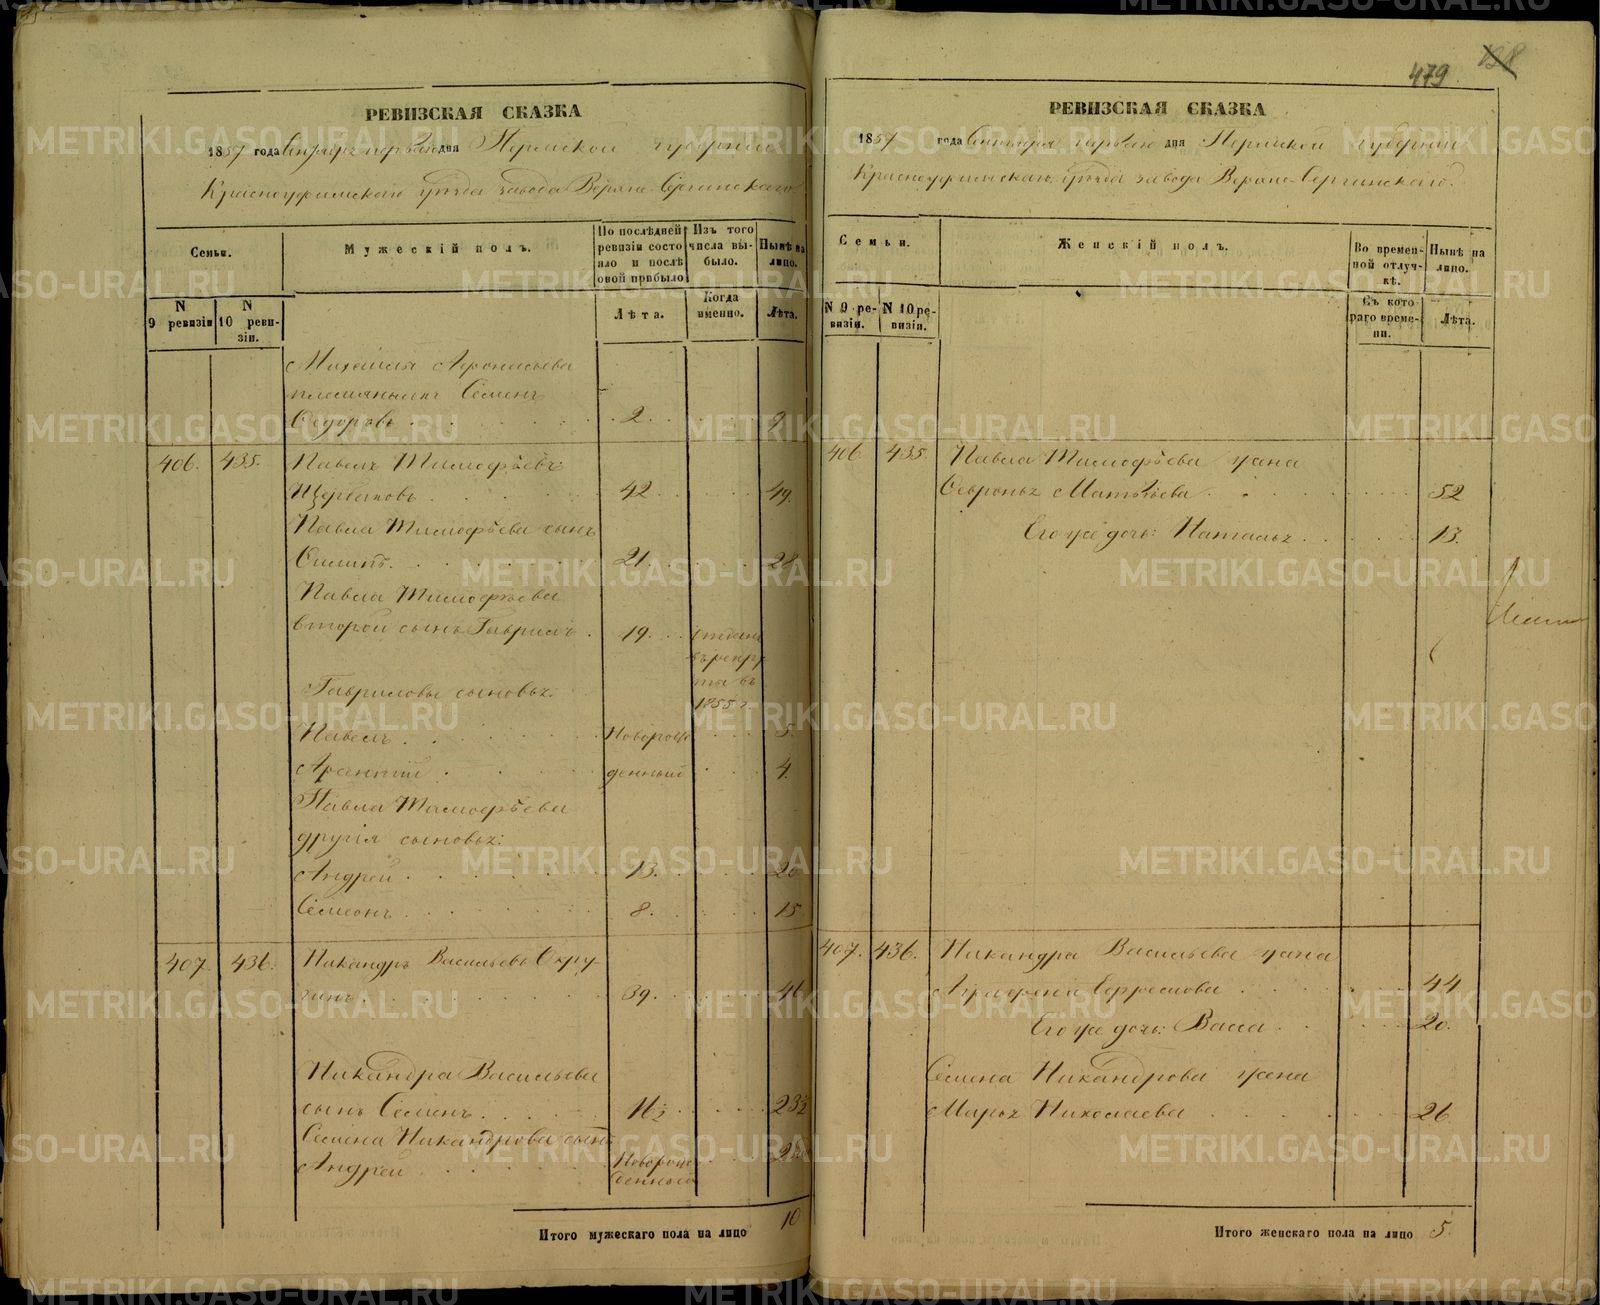 479
РЕВИЗСКАЯ СКАЗКА
1857 года Сентября первого дня Пермской губернии
Красноуфимскаго уѣзда завода Верхне-Сергинскаго
Семьи.
Мужескій полъ.
По послѣдней ревизіи состояло и послѣ оной прибыло
Изъ того числа выбыло.
Нынѣ на лицо.
N 9 ревизіи
N 10 ревизіи.
Лѣта.
Когда именно.
Лѣта.
Михаила Афонасьева
племянникъ Семенъ
Федоровъ 2 9
406. 435. Павелъ Тимофѣевъ
Щербаковъ 42 49
Павла Тимофѣева сынъ
21. 28
Павла Тимофѣева
второй сынъ Гаврилъ 19. отданъ
въ рекру
ты въ
1855 г.
Гавриловы сыновья.
Павелъ Новорож 5
денный 4
Павла Тимофѣева
другія сыновья:
Андрей 13. 20
Семеонъ 8. 15
407 436. Никандръ Васильевъ
39. 46
Никандра Васильева
сынъ Семенъ
Семена Никандрова сынъ
Андрей Новорож
денный
Итого мужескаго пола на лицо 10
РЕВИЗСКАЯ СКАЗКА
1857 года Сентября перваго дня Пермской губернии
Красноуфимскаго уѣзда завода Верхне-Сергинскаго.
Семьи.
Женскій полъ.
Во временной отлучкѣ.
Нынѣ на лицо.
N 9 ревизіи.
N 10 ревизіи.
Съ котораго времени.
Лѣта.
406 435. Павла Тимофѣева жена
Февронья Матвѣева 52
Его же дочь: Наталья 13.
407. 436. Никандра Васильева жена
Аграфена Ефремова 44
Его же дочь: Васса 20.
Семена Никандрова жена
Марья Николаева 26
Итого женскаго пола на лицо 5.
METRIKI.GASO-URAL.RU